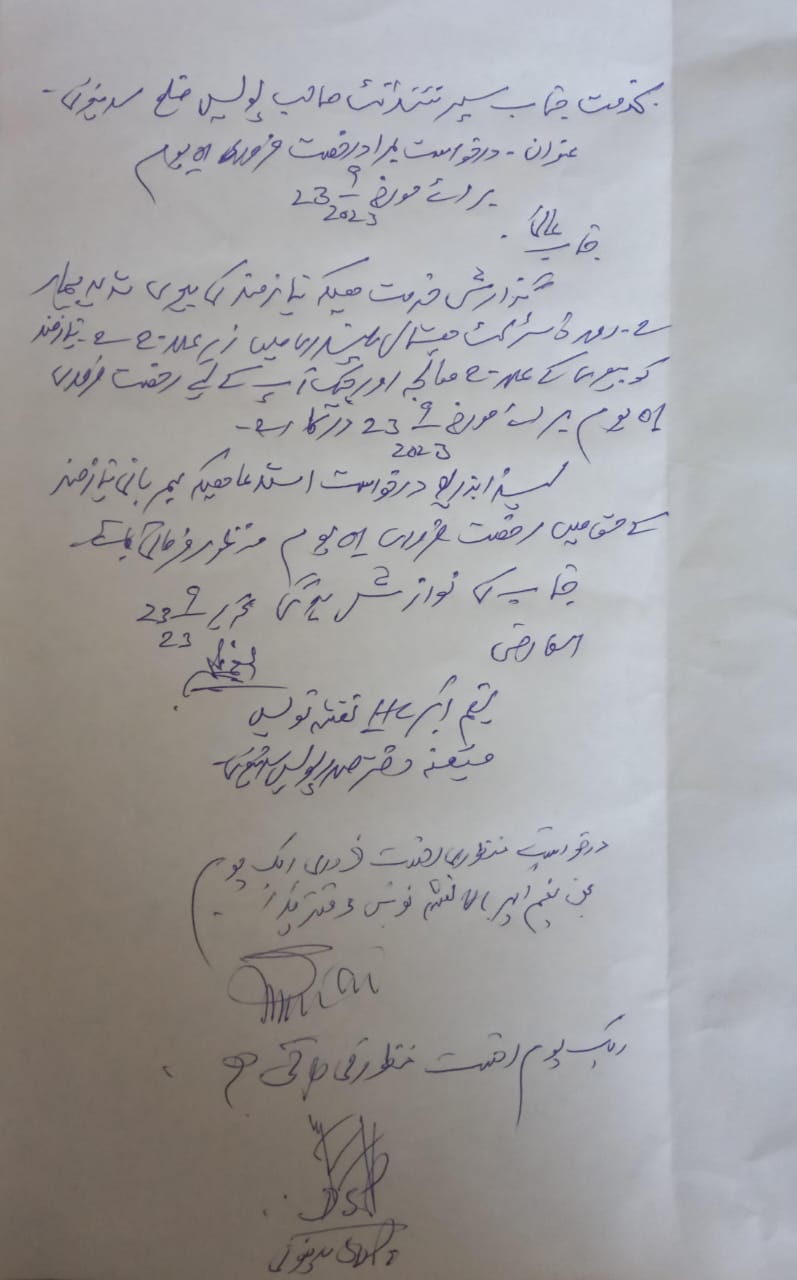 بخدمت جناب سپرنٹنڈنٹ صاحب پولیس ضلع سدہنوتی۔
عنوان - درخواست بمراد رخصت ضروری 01 یوم
برائے مورخہ 23-9-2023
جناب عالی!
گذارش خدمت ہیکہ نیازمند کی بیوی شدید بیمار
ہے۔ اور ڈسٹرکٹ ہسپتال پلندری میں زیر علاج ہے۔ نیازمند
کو بیوی کے علاج معالجہ اور چیک اپ کے لیے رخصت ضروری
01 یوم برائے مورخہ 23-9-2023 درکار ہے۔
لہذا بذریعہ درخواست استدعا ہیکہ مہربانی نیازمند
کے حق میں رخصت ضروری 01 یوم منظور فرمائی جائے۔
جناب کی نوازش ہوگی تحریر 23-9-23
العارضی
HC نقشہ نویس
متعینہ دفتر صدر پولیس سدہنوتی
درخواست منظوری رخصت ضروری ایک یوم
نقشہ نویس دفتر
ایک یوم رخصت منظور کی جاتی ہے
DSP
سدہنوتی